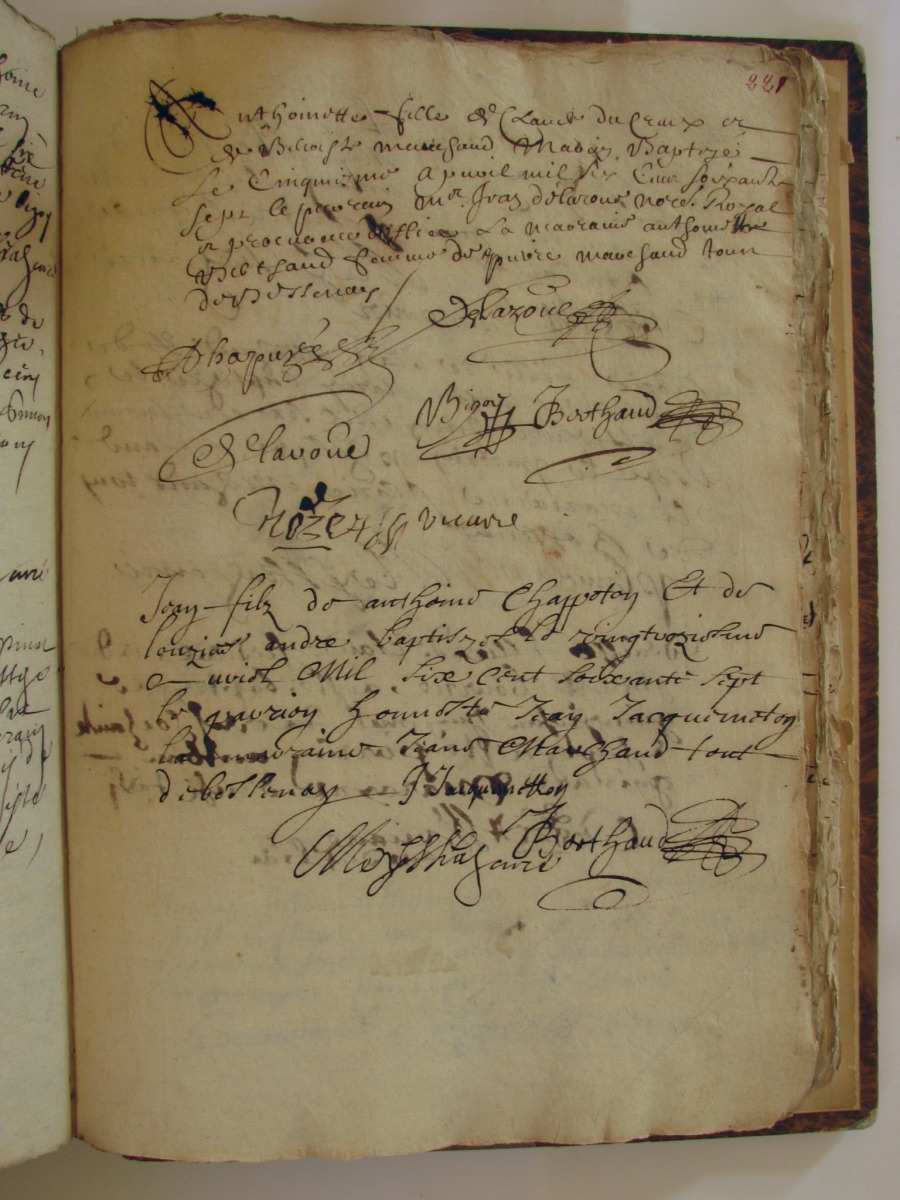 221
Anthoinette fille de Claude du Creux et
de Benoiste marchand Baptizé
Le Cinquiesme Apvril mil six Cens soixante
sept Le parrain Mre Jean Delaroue Nore Royal
et procureur La marraine anthoinette
Berthaud femme de pierre marchand tous
de Bessenay
Chapuis
Delaroue
Bigot Berthaud
Delaroue
Rozet vicaire
Jean filz de anthoine Chappoton Et de
andre baptisze le
avril Mil Six Cent Soixante Sept
le parrion honneste Jean Jacquemeton
la marraine Jeane Marchand tout
de bessenay J Jacquemetton
Berthaud